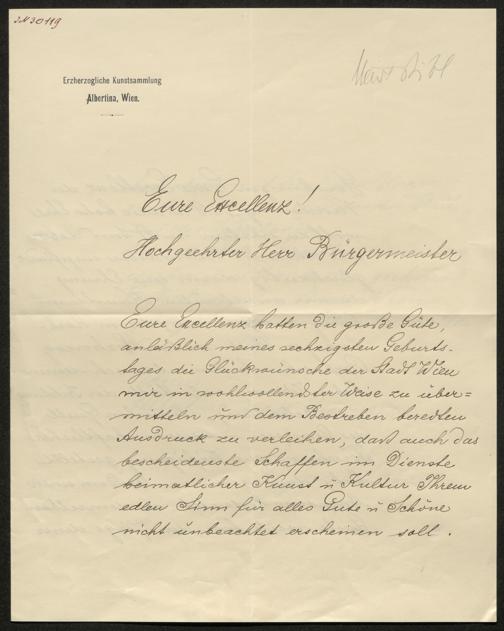 Erzherzogliche Kunstsammlung
Albertina, Wien.
Eure Excellenz!
Hochgeehrter Herr Bürgermeister
Eure Excellenz hatten die große Güte,
anläßlich meines sechzigsten Geburts-
tages die Glückwünsche der Stadt Wien
mir in wohlwollendster Weise zu über=
mitteln und dem Bestreben beredten
Ausdruck zu verleihen, daß auch das
bescheidenste Schaffen im Dienste
heimatlicher Kunst u Kultur Ihrem
edlen Sinn für alles Gute u Schöne
nicht unbeachtet erscheinen soll.